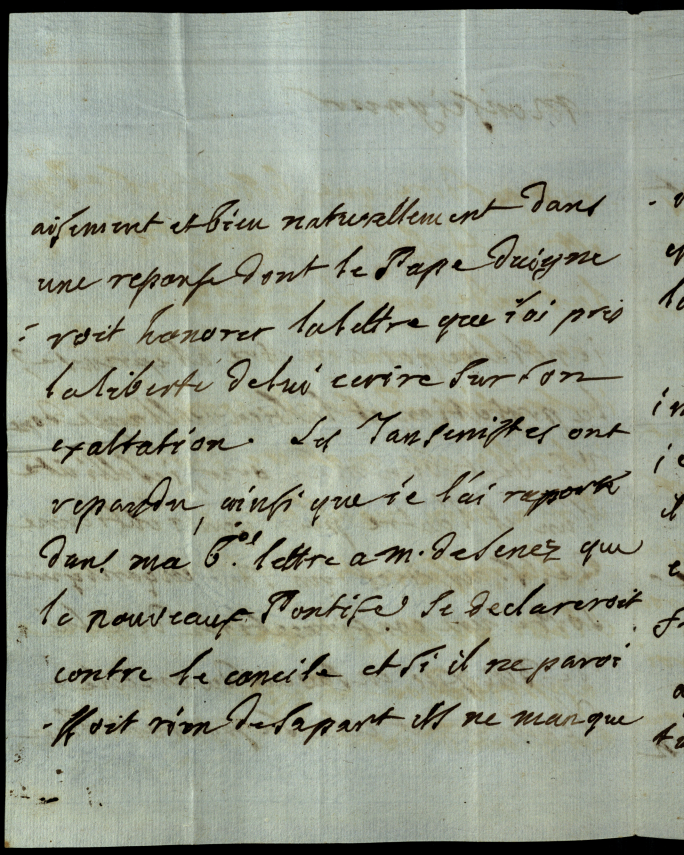 aisement et bien naturellement dans
une reponse dont le Pape daigne
- roit honorer la lettre que i'ai pris
la liberté de lui ecrire sur son
exaltation. Les Jansenistes ont
repandu, ainsi que ie l'ai raporté
dans ma lettre a m. de Senez que
le nouveaux Pontife se declareroit
contre le concile et si il ne paroi
- ssoit rien de sa part ils ne manque